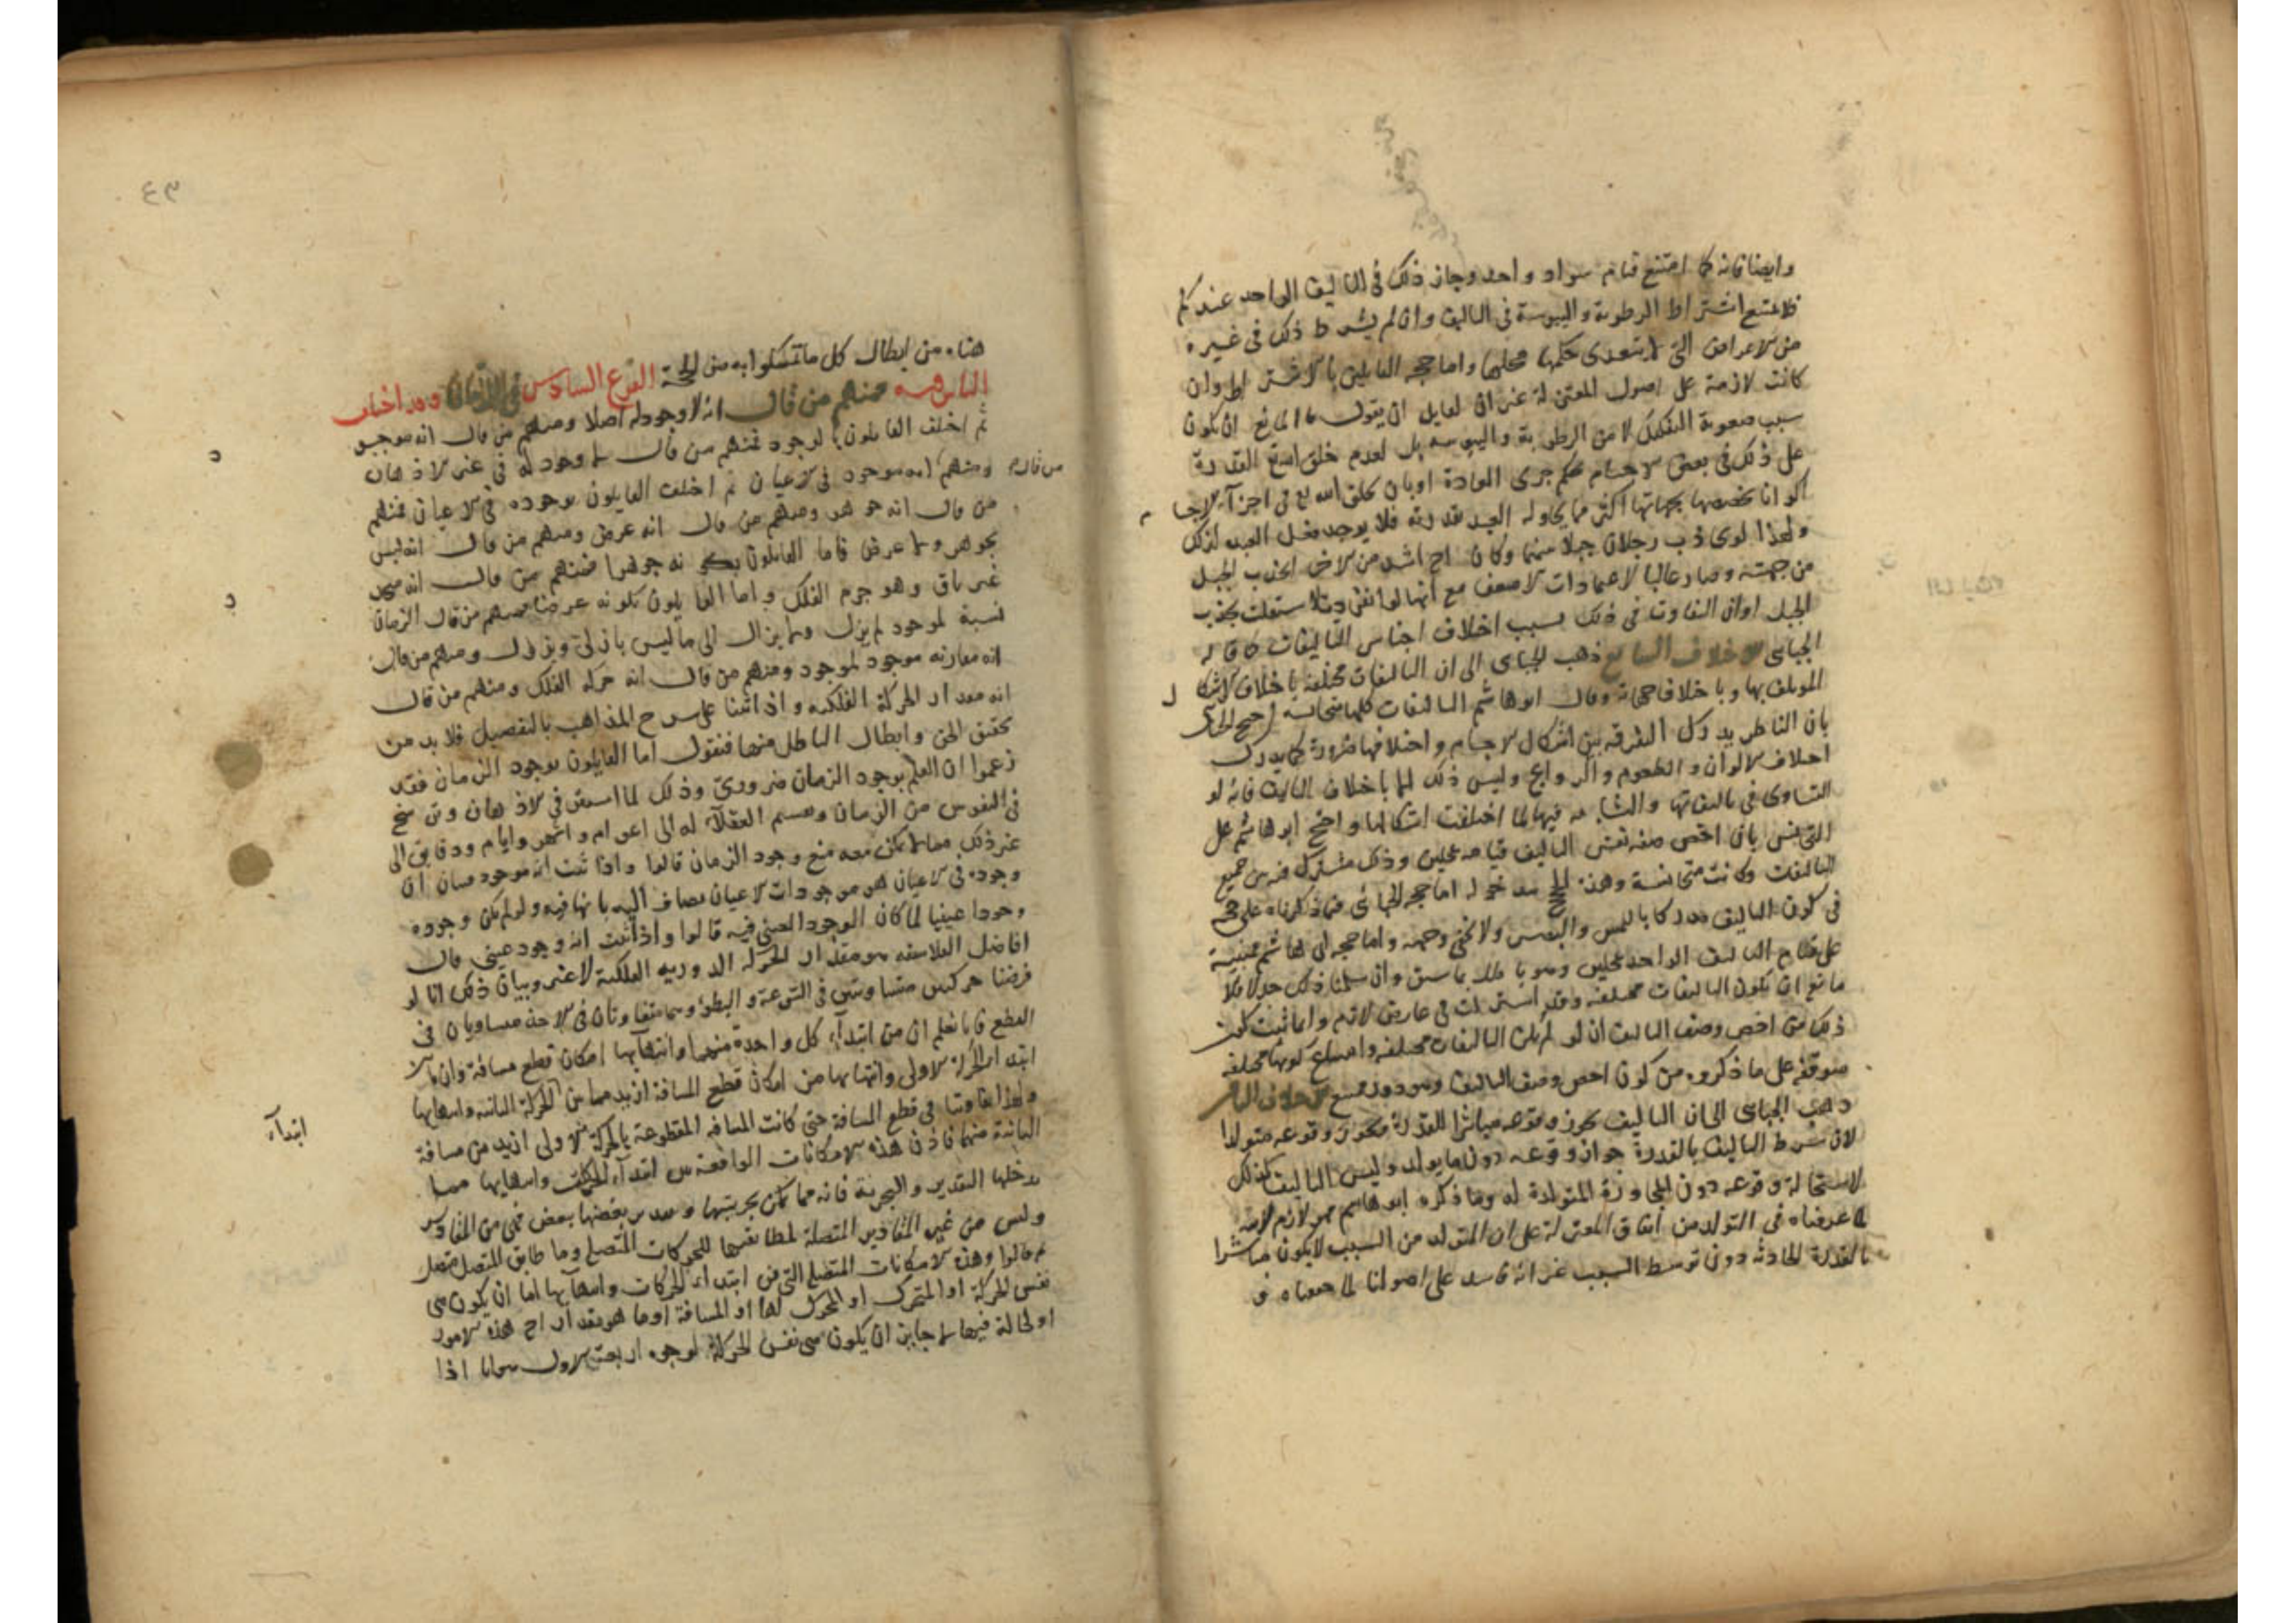 وايضا فانه كما امتنع قيام سواد واحد وجاز ذلك في التاليف الواحد عندكم
فلا يمتنع اشتراط الرطوبة واليبوسة في التاليف وان لم يشترط ذلك في غيره
من الاعراض التي لا يتعدى حكمها محلها واما حجه القايلين بالاشتراط وان
كانت لازمة على اصول المعتزلة غير ان لقايل ان يقول ما المانع ان يكون
سبب صعوبة التفكيك لا من الرطوبة واليبوسه بل لعدم خلق الله القدرة
على ذلك في بعض الاجسام بحكم جرى العادة او بان يخلق الله تع في اجزآء الاجسام
اكوانا تخصصها بجهاتها اكثر مما يحاوله العبد بقدرته فلا يوجد فعل العبد لذلك
ولهذا لو جذب رجلان حبلا بينهما وكان احدهما اشد من الاخر انجذب الحبل
من جهته وصار غالبا لاعتمادات الاضعف مع انها لو انفردت لاستقلت بجذب
الحبل او ان التفاوت في ذلك بسبب اختلاف اجناس التاليفات كما قاله
الجباى الاختلاف السابع ذهب الجباى الى ان التاليفات مختلفة باختلاف الاشكال
المولف بها وباختلاف جهاته وقال ابو هاشم التاليفات كلها متجانسه احتج الجباى
بان الناظر يدرك التفرقه بين اشكال الاجسام واختلافها ضرورة كما يدرك
اختلاف الالوان والطعوم والروايح وليس ذلك الا باختلاف التاليف فانه لو
التساوى في تاليفاتها والتشابه فيها لما اختلفت اشكالها واحتج ابو هاشم على
التجنيس بان اخص صفه نفس التاليف قيامه بمحلين وذلك مشترك فيه بين جميع
التاليفات وكانت متجانسة وهذه الحجج مدخوله اما حجه الجباى فما ذكرناه على حججه
في كون التاليف مدركا باللمس والبصر ولا يخفى وجهه واما حجه ابى هاشم فمبنية
على قيام التاليف الواحد بمحلين وهو باطل بما سبق وان سلمنا ذلك جدلا فلا
مانع ان يكون التاليفات مختلفه وقد اشتركت في عارض لازم وانما يثبت كون
ذلك من اخص وصف التاليف ان لو لم يكن التاليفات مختلفه وامتناع كونها مختلفه
متوقفه على ما ذكروه من كون اخص وصف التاليف وهو دور ممتنع الاختلاف الثامن
ذهب الجباى الى ان التاليف يجوز وقوعه مباشرا للقدرة ويجوز وقوعه متولدا
لان شرط التاليف بالقدرة جواز وقوعه دون ما يولد وليس التاليف كذلك
لاستحالة وقوعه دون المجاورة المتولدة له وما ذكره ابو هاشم فهو لازم لابيه
لما عرفناه في التولد من اتفاق المعتزلة على ان المتولد من السبب لا يكون مباشرا
بالقدرة الحادثه دون توسط السبب غير انه فاسد على اصولنا لما حققناه و
٤٣
هناه من ابطال كل ما تمسكوا به من الحجة الفرع السادس في الزمان وقد اختلف
الناس فيه فمنهم من قال انه لا وجود له اصلا ومنهم من قال انه موجود
ثم اختلف القايلون بالوجود فمنهم من قال لا وجود له في غير الاذهان
ومنهم انه موجود في الاعيان ثم اختلف القايلون بوجوده في الاعيان فمنهم
من قال
من قال انه جوهر ومنهم من قال انه عرض ومنهم من قال انه ليس
بجوهر ولا عرض فاما القايلون بكونه جوهرا فمنهم من قال انه مجرد
غير باق وهو جرم الفلك واما القايلون بكونه عرضا فمنهم من قال الزمان
نسبة لموجود لم يزل ولا يزال الى ما ليس بازلي ويزول ومنهم من قال
انه مقارنه موجود لموجود ومنهم من قال انه حركه الفلك ومنهم من قال
انه مقدار الحركة الفلكيه واذ اتينا على شرح المذاهب بالتفصيل فلا بد من
تحقيق الحق وابطال الباطل منها فنقول اما القايلون بوجود الزمان فقد
زعموا ان العلم بوجود الزمان ضروري وذلك لما استقر في الاذهان وترسخ
في النفوس من الزمان وقسم العقلآء له الى اعوام واشهر وايام ودقايق الى
غير ذلك مما لا يمكن معه منع وجود الزمان قالوا واذا ثبت انه موجود فبيان ان
وجوده في الاعيان هو ان موجودات الاعيان مضاف اليه بانها فيه ولو لم يكن وجوده
وجودا عينيا لما كان الموجود العيني فيه قالوا واذا ثبت انه وجود عيني قال
افاضل الفلاسفه هو مقدار للحركه الدوريه الفلكية لا غير وبيان ذلك انا لو
فرضنا حركتين متساويتين في السرعة والبطؤ وهما متفاوتان في الاخذ متساويان في
القطع فانا نعلم ان من ابتدآء كل واحدة منهما وانتهآيها امكان قطع مسافة وان ما
ابتدآء الحركة الاولى وانتهايها من امكان قطع المسافة ازيد مما بين الحركة الثانيه وانتهايها
ابتدآء
ولهذا تفاوتتا في قطع المسافة حتى كانت المسافه المقطوعة بالحركة الاولى ازيد من مسافة
الثانية منهما فاذن هذه الامكانات الواقعة بين ابتدآء الحركات وانتهايها مما
يدخلها التقدير والتجزية فانه مما يمكن تجزيتها وتقدير بعضها ببعض فهي من المقادير
وليس من غير المقادير المتصلة لمطابقتها للحركات المتصلة وما طابق المتصل متصل
ثم قالوا وهذه الامكانات المتصلة التي بين ابتداء الحركات وانتهآيها اما ان يكون هي
نفس الحركة او المتحرك او المحرك لها او المسافة او ما هو مقدار احد هذه الامور
او لحالة فيها لا جايز ان يكون هي نفس الحركة لوجوه اربعة الاول هو انا اذا